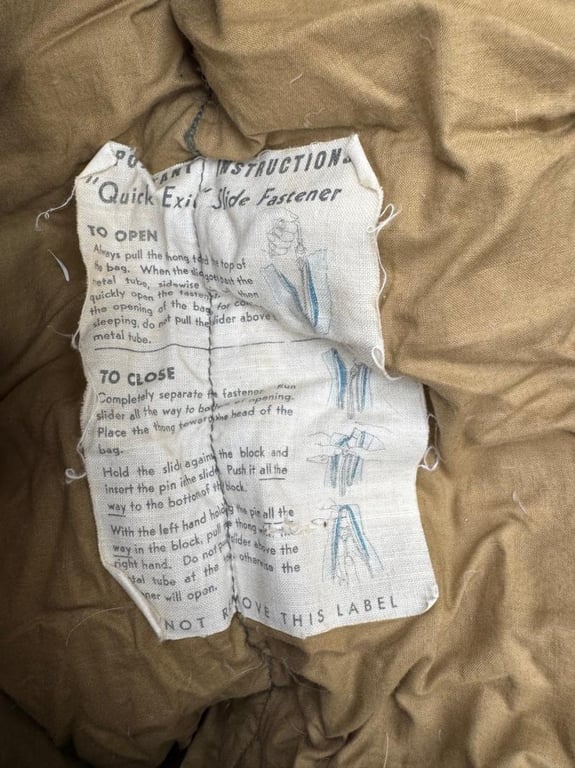 INSTRUCTIONS
"Quick Exit" Slide Fastener
TO OPEN
Always pull the thong top of
bag. When the the
tube, sidewise
quickly open the then
the opening of the bag for
sleeping, do not pull the slider above
metal tube.
TO CLOSE
Completely separate fastener. Run
slider all the way to opening.
Place the thong toward the head of the
bag.
Hold the slide against the block and
insert the pin in the slide. Push it all the
way to the bottom of the block.
With the left hand holding the pin all the
way in the block, pull the thong the
right hand. Do not slider above the
tube at the otherwise the
will open.
NOT REMOVE THIS LABEL